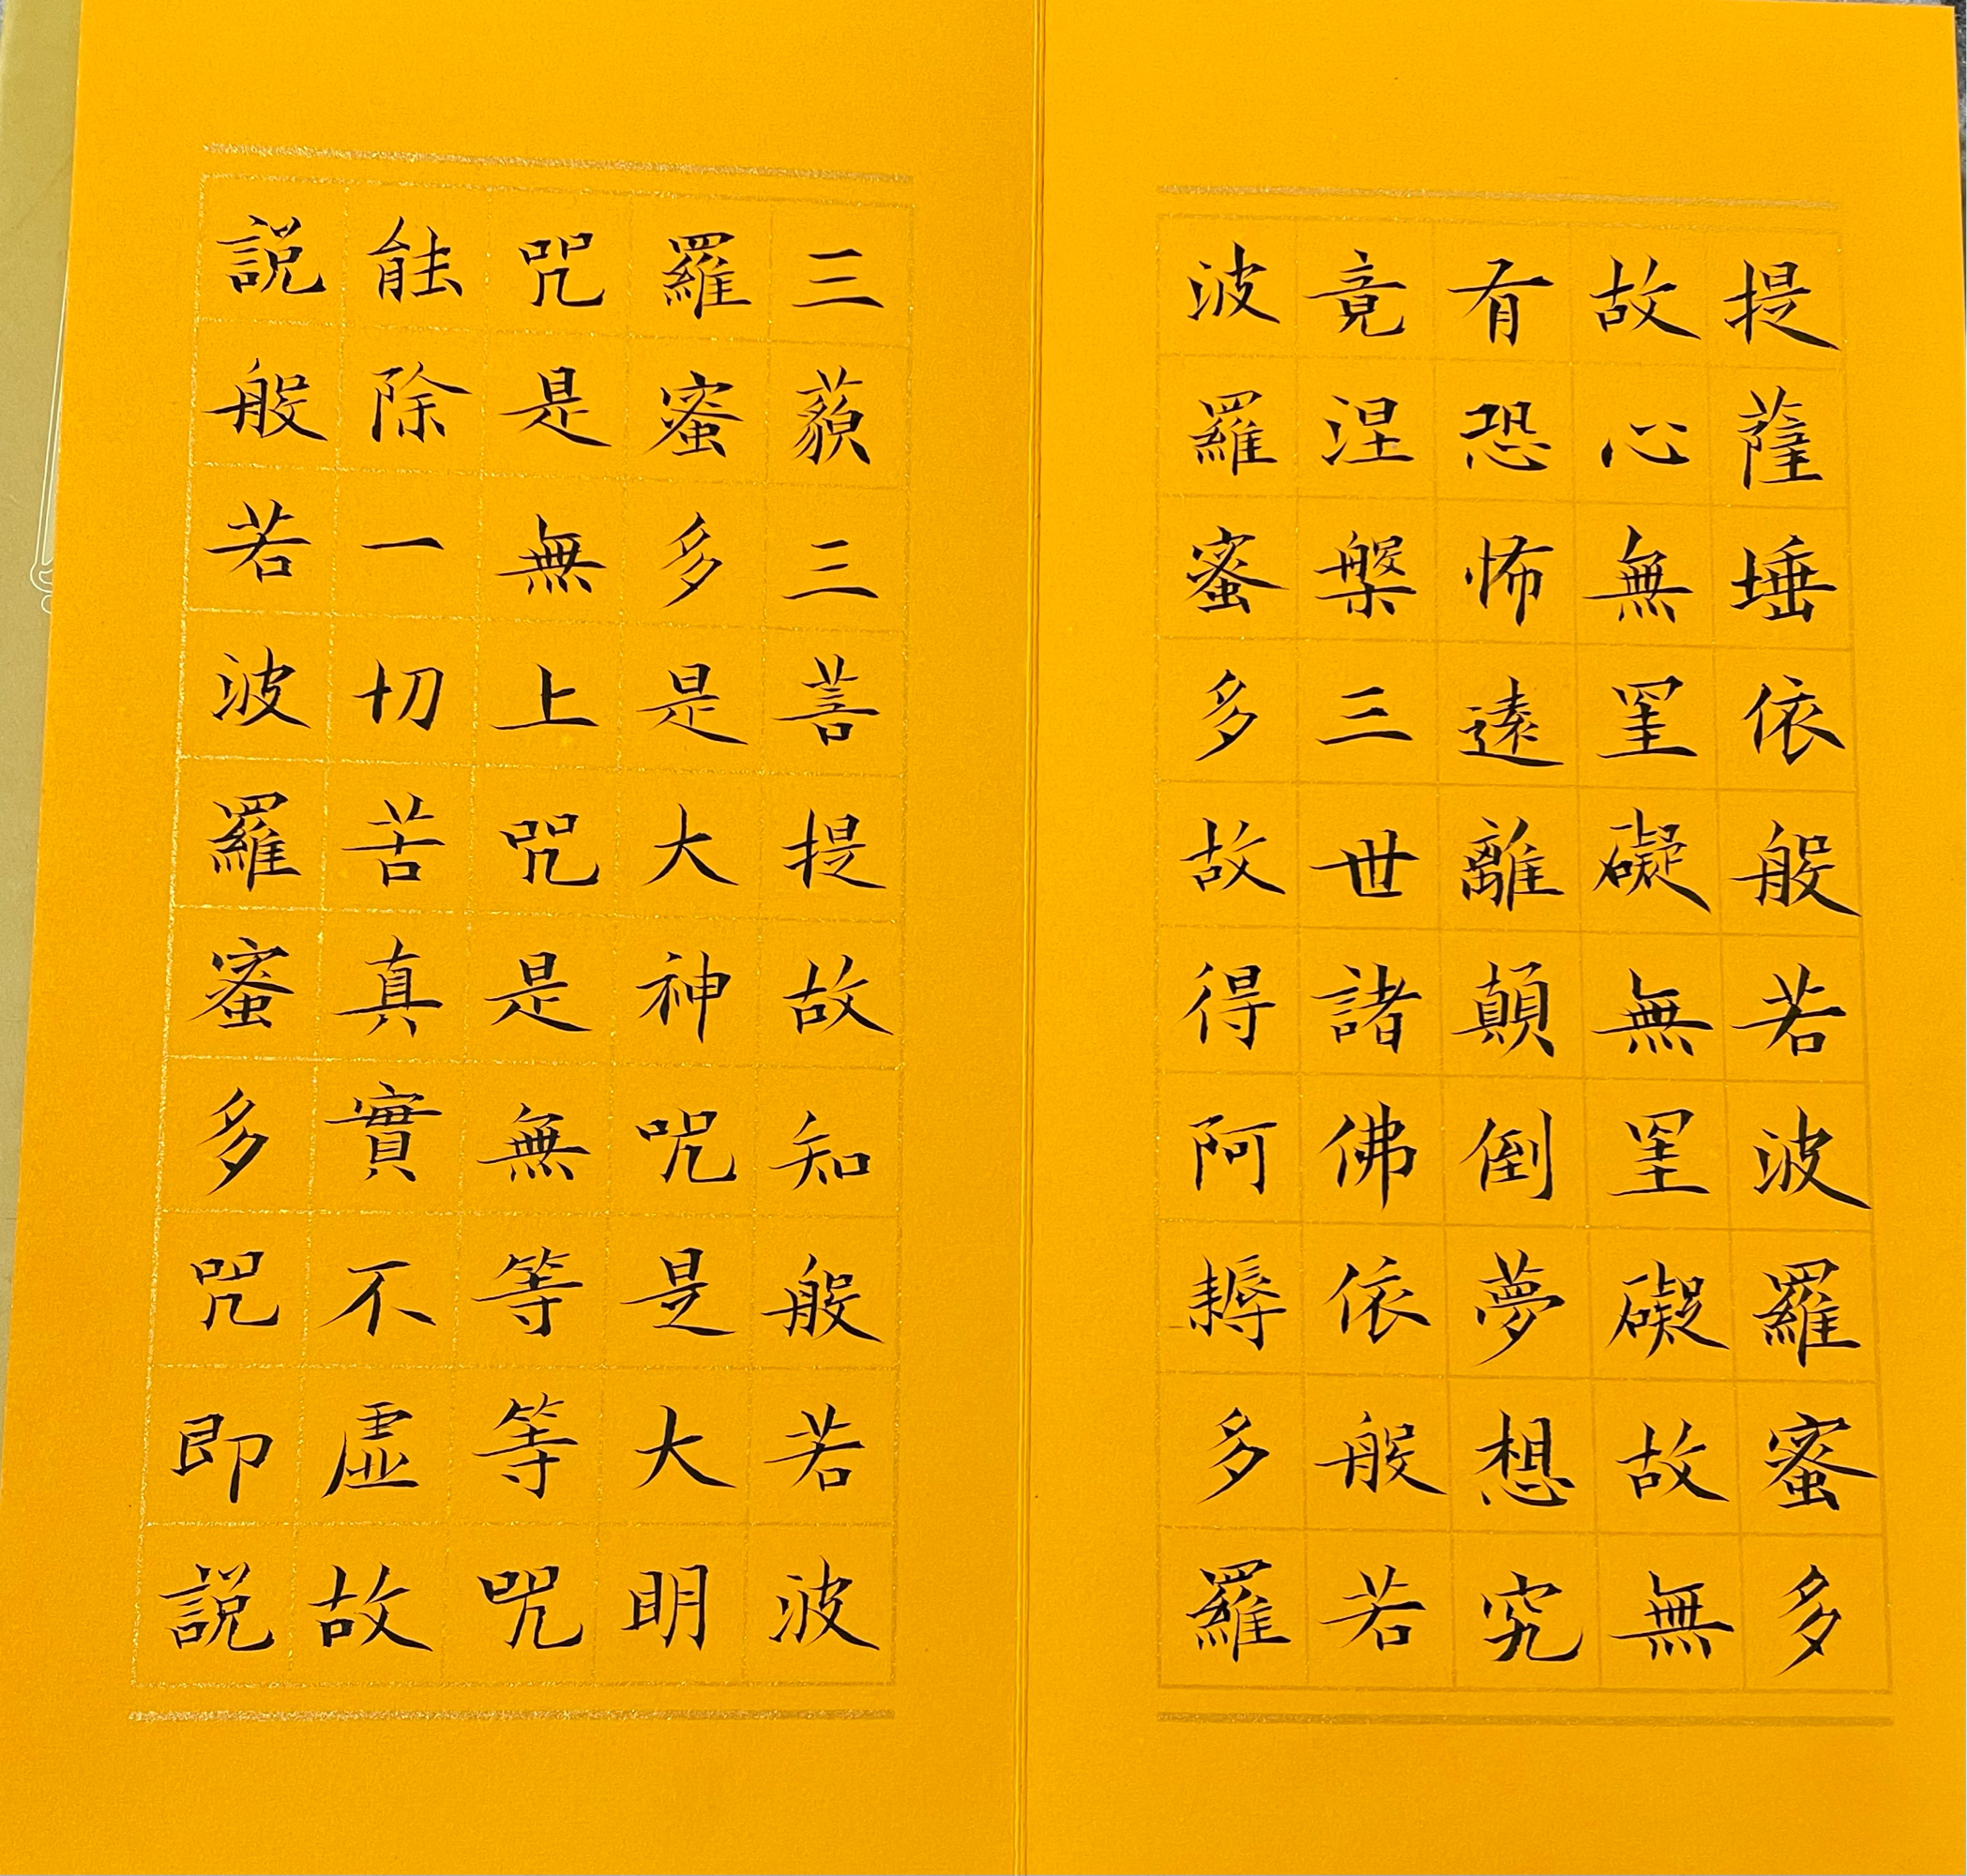 提薩埵依般若波羅蜜多
故心無罣礙無罣礙故無
有恐怖遠離顛倒夢想究
竟涅槃三世諸佛依般若
波羅蜜多故得阿耨多羅
三藐三菩提故知般若波
羅蜜多是大神咒是大明
咒是無上咒是無等等咒
能除一切苦真實不虛故
説般若波羅蜜多咒即説